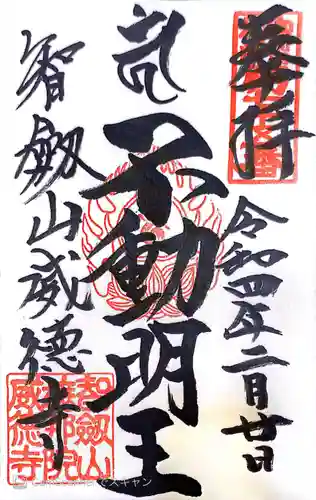 奉拝
令和四年二月廿日
不動明王
智劔山威徳寺
智劔山
威徳寺
でスキャン